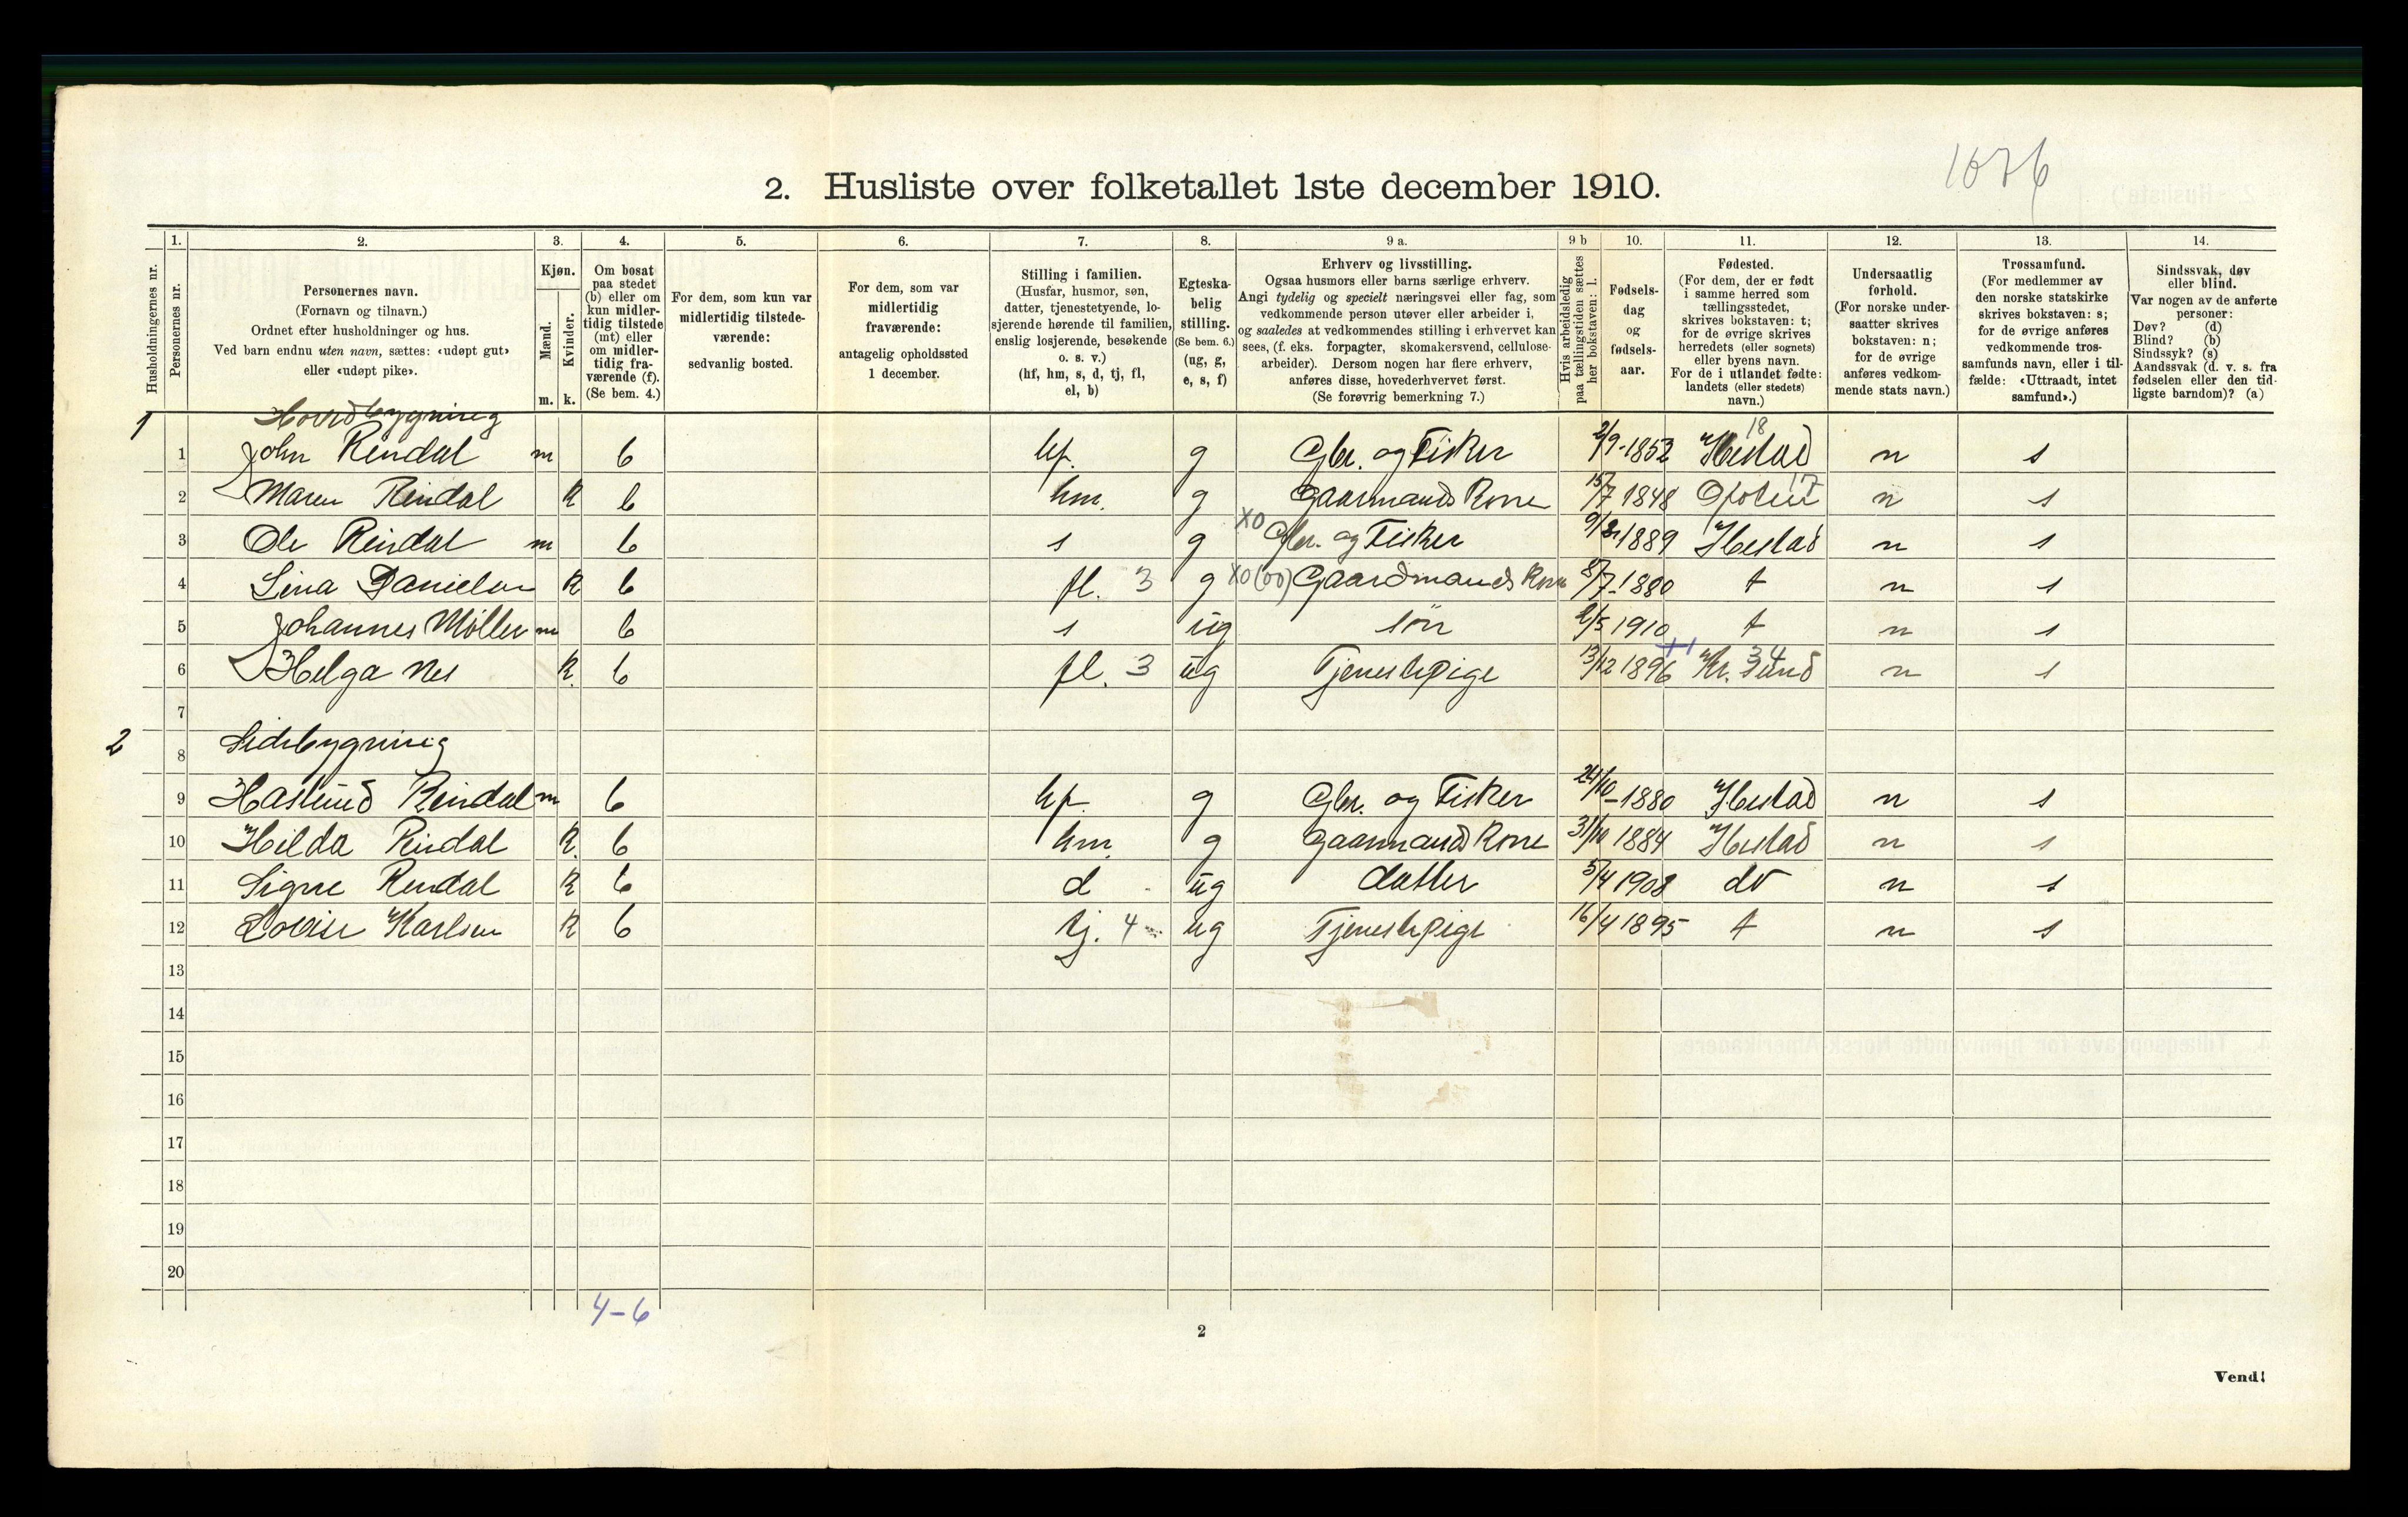 1076
2. Husliste over folketallet 1ste december 1910.
Husholdningernes nr.
1. Personernes nr.
2. Personernes navn. (Fornavn og tilnavn.) Ordnet efter husholdninger og hus. Ved barn endnu uten navn, sættes: «udøpt gut» eller «udøpt pike».
3. Kjøn. Mænd. m. Kvinder. k.
4. Om bosat paa stedet (b) eller om kun midler-tidig tilstede (mt) eller om midler-tidig fra-værende (f). (Se bem. 4.)
5. For dem, som kun var midlertidig tilstede-værende: sedvanlig bosted.
6. For dem, som var midlertidig fraværende: antagelig opholdssted 1 december.
7. Stilling i familien. (Husfar, husmor, søn, datter, tjenestetyende, lo-sjerende hørende til familien, enslig losjerende, besøkende o. s. v.) (hf, hm, s, d, tj, fl, el, b)
8. Egteska-belig stilling. (Se bem. 6.) (ug, g, e, s, f)
9 a. Erhverv og livsstilling. Ogsaa husmors eller barns særlige erhverv. Angi tydelig og specielt næringsvei eller fag, som vedkommende person utøver eller arbeider i, og saaledes at vedkommendes stilling i erhvervet kan sees, (f. eks. forpagter, skomakersvend, cellulose-arbeider). Dersom nogen har flere erhverv, anføres disse, hovederhvervet først. (Se forøvrig bemerkning 7.)
9 b Hvis arbeidsledig paa tællingstiden sættes her bokstaven: l.
10. Fødsels-dag og fødsels-aar.
11. Fødested. (For dem, der er født i samme herred som tællingsstedet, skrives bokstaven: t; for de øvrige skrives herredets (eller sognets) eller byens navn. For de i utlandet fødte: landets (eller stedets) navn.)
12. Undersaatlig forhold. (For norske under-saatter skrives bokstaven: n; for de øvrige anføres vedkom-mende stats navn.)
13. Trossamfund. (For medlemmer av den norske statskirke skrives bokstaven: s; for de øvrige anføres vedkommende tros-samfunds navn, eller i til-fælde: «Uttraadt, intet samfund».)
14. Sindssvak, døv eller blind. Var nogen av de anførte personer: Døv? (d) Blind? (b) Sindssyk? (s) Aandssvak (d. v. s. fra fødselen eller den tid-ligste barndom)? (a)
1 Hovedbygning
18
1 John Rendal m b hf. g Gbr. og Fisker 2/9-1852 Herstad n s
2 Maren Rendal k b hm. g Gaarmands Kone 15/7 1848 Ofoten 17 n s
3 Ole Rendal m b s g XO Gbr. og Fisker 1889 Herstad n s
4 Lina Danielsen k b fl. 3 g XO (OO) Gaardmands Kone 8/7-1880 t n s
5 Johannes Møller m b s ug søn 2/5 1910 t n s
6 Helga Nes k. b fl. 3 ug Tjenestepige 13/12 1896 Kr. Sund 34 n s
7
2 Sidebygning
8
9 Haslund Rendal m b hf g Gbr. og Fisker 24/10-1880 Herstad n s
10 Hilda Rendal k. b hm. g Gaarmands Kone 31/10 1884 Herstad n s
11 Signe Rendal k b d ug datter 5/4 1908 do n s
12 Lovise Karlsen k b tj. 4 ug Tjenestepige 16/4 1895 t n s
13
14
15
16
17
18
19
20
4-6
2
Vend!